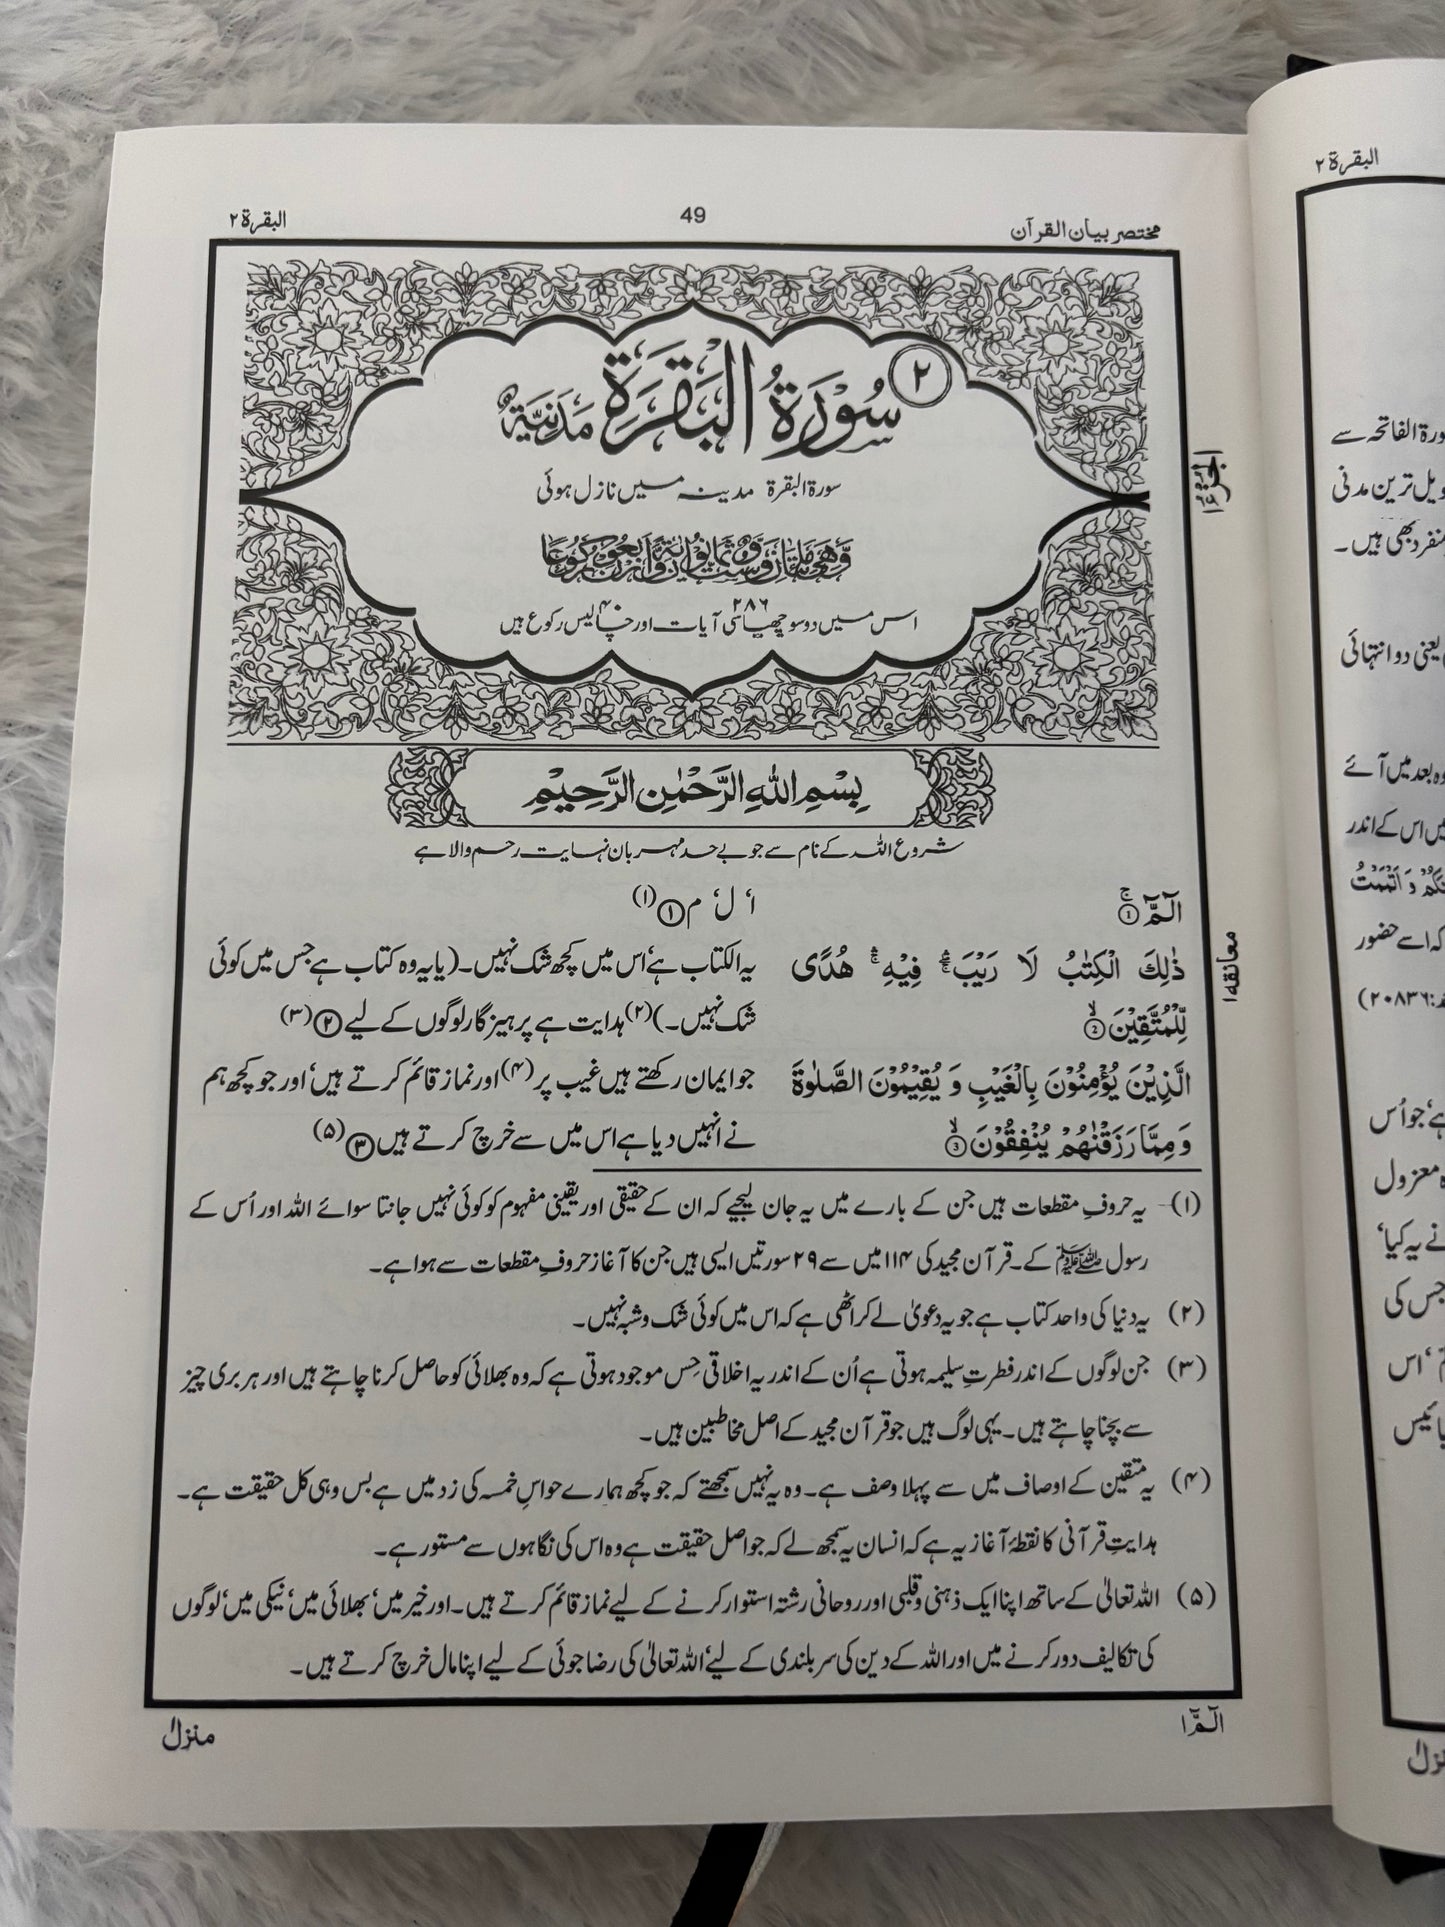 مختصر بیان القرآن
49
البقرۃ ۲
۲
سُوْرَةُ الْبَقَرَةِ مَدَنِیَّةٌ
سورۃ البقرۃ مدینہ میں نازل ہوئی
اس میں دوسو چھیاسی ۲۸۶ آیات اور چالیس ۴۰ رکوع ہیں
بِسْمِ اللّٰهِ الرَّحْمٰنِ الرَّحِیْمِ
شروع اللہ کے نام سے جو بے حد مہربان نہایت رحم والا ہے
الٓمّٓ ۚ ①
ا‘ ل‘ م ① (۱)
ذٰلِكَ الْكِتٰبُ لَا رَیْبَ ۛۚ فِیْهِ ۛۚ هُدًى
یہ الکتاب ہے‘ اس میں کچھ شک نہیں۔ (یا یہ وہ کتاب ہے جس میں کوئی
لِّلْمُتَّقِیْنَ ۙ ②
شک نہیں۔) (۲) ہدایت ہے پرہیزگار لوگوں کے لیے ② (۳)
الَّذِیْنَ یُؤْمِنُوْنَ بِالْغَیْبِ وَ یُقِیْمُوْنَ الصَّلٰوةَ
جو ایمان رکھتے ہیں غیب پر (۴) اور نماز قائم کرتے ہیں‘ اور جو کچھ ہم
وَ مِمَّا رَزَقْنٰهُمْ یُنْفِقُوْنَ ۙ ③
نے انہیں دیا ہے اس میں سے خرچ کرتے ہیں ③ (۵)
معانقه ۱
(۱) یہ حروفِ مقطعات ہیں جن کے بارے میں یہ جان لیجیے کہ ان کے حقیقی اور یقینی مفہوم کو کوئی نہیں جانتا سوائے اللہ اور اُس کے
رسول ﷺ کے۔ قرآن مجید کی ۱۱۴ میں سے ۲۹ سورتیں ایسی ہیں جن کا آغاز حروفِ مقطعات سے ہوا ہے۔
(۲) یہ دنیا کی واحد کتاب ہے جو یہ دعویٰ لے کر اٹھی ہے کہ اس میں کوئی شک و شبہ نہیں۔
(۳) جن لوگوں کے اندر فطرتِ سلیمہ ہوتی ہے اُن کے اندر یہ اخلاقی حِس موجود ہوتی ہے کہ وہ بھلائی کو حاصل کرنا چاہتے ہیں اور ہر بری چیز
سے بچنا چاہتے ہیں۔ یہی لوگ ہیں جو قرآن مجید کے اصل مخاطبین ہیں۔
(۴) یہ متقین کے اوصاف میں سے پہلا وصف ہے۔ وہ یہ نہیں سمجھتے کہ جو کچھ ہمارے حواسِ خمسہ کی زد میں ہے بس وہی کل حقیقت ہے۔
ہدایتِ قرآنی کا نقطۂ آغاز یہ ہے کہ انسان یہ سمجھ لے کہ جو اصل حقیقت ہے وہ اس کی نگاہوں سے مستور ہے۔
(۵) اللہ تعالیٰ کے ساتھ اپنا ایک ذہنی و قلبی اور روحانی رشتہ استوار کرنے کے لیے نماز قائم کرتے ہیں۔ اور خیر میں‘ بھلائی میں‘ نیکی میں‘ لوگوں
کی تکالیف دور کرنے میں اور اللہ کے دین کی سربلندی کے لیے‘ اللہ تعالیٰ کی رضا جوئی کے لیے اپنا مال خرچ کرتے ہیں۔
الٓمّٓ ۱
منزل ۱
البقرۃ ۲
ورۃ الفاتحہ سے
ویل ترین مدنی
منفرد بھی ہیں۔
یعنی دو انتہائی
وہ بعد میں آئے
یں اس کے اندر
کہ اسے حضور
۲۰۸۳۶)
ہے‘ جو اُس
معزول
نے یہ کیا‘
جس کی
اس